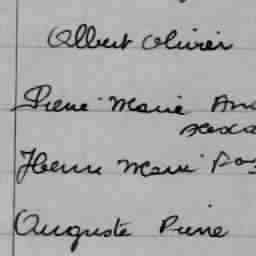 Albert Olivier
Pierre Marie
Henri Marie
Auguste Pierre